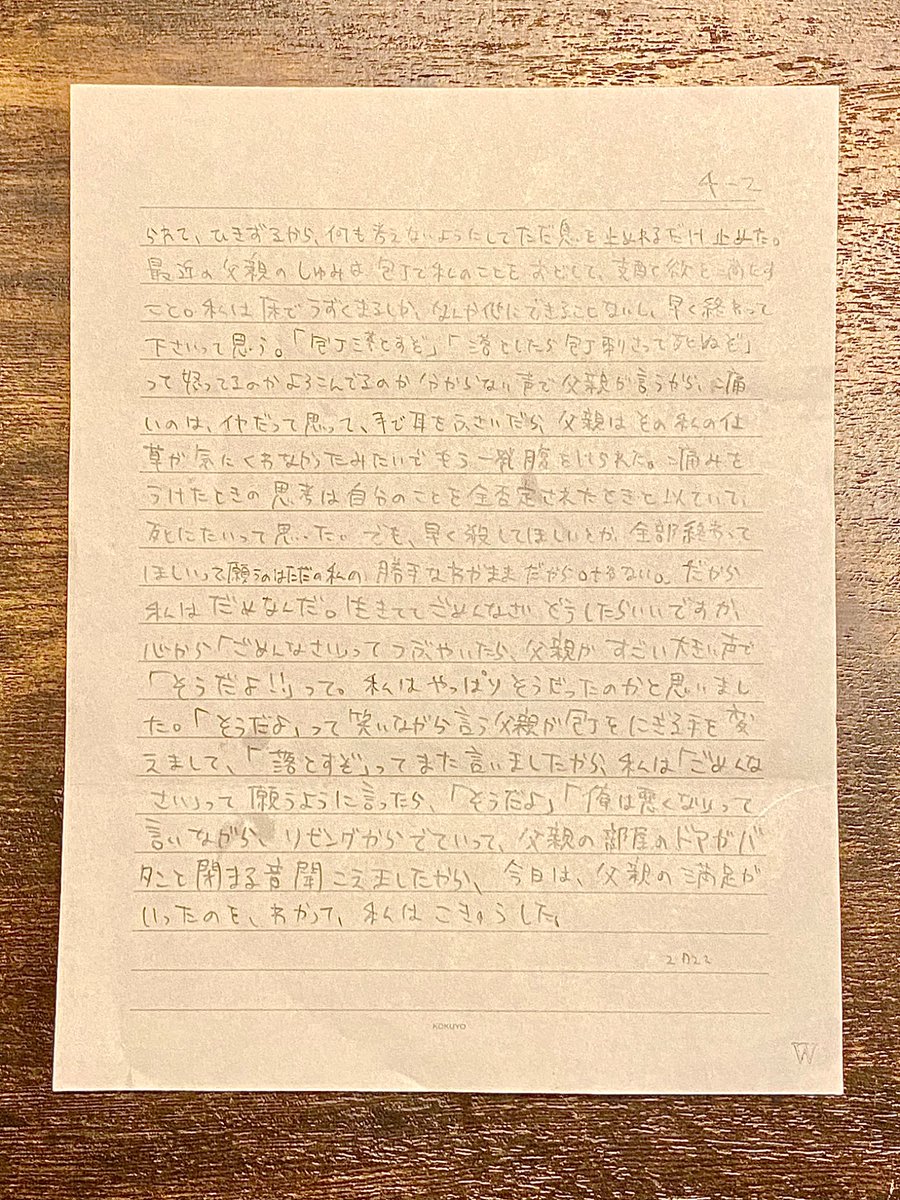 4-2
られて、ひきずるから、何も考えないようにしてただ息を止めれるだけ止めた。
最近の父親のしゅみは包丁で私のことをおどして、支配欲を満たす
こと。私は床でうずくまるしか、なんか他にできることないし、早く終わって
下さいって思う。「包丁落とすぞ」「落としたら包丁刺さって死ぬぞ」
って怒ってるのかよろこんでるのか分からない声で父親が言うから、痛
いのは、イヤだって思って、手で耳をふさいだら、父親はその私の仕
草が気にくわなかったみたいでもう一発腹をけられた。痛みを
うけたときの思考は自分のことを全否定されたときと似ていて、
死にたいって思った。でも、早く殺してほしいとか、全部終わって
ほしいって願うのはただの私の勝手なわがままだから。させない。だから
私はだめなんだ。生きててごめんなさい どうしたらいいですか、
心から「ごめんなさい」ってつぶやいたら、父親がすごい大きい声で
「そうだよ!!」って。私はやっぱりそうだったのかと思いまし
た。「そうだよ」って笑いながら言う父親が包丁をにぎる手を変
えまして、「落とすぞ」ってまた言いましたから、私は「ごめんな
さい」って願うように言ったら、「そうだよ」「俺は悪くない」って
言いながら、リビングからでていって、父親の部屋のドアがバ
タンと閉まる音聞こえましたから、今日は、父親の満足が
いったのを、わかって、私はこきゅうした、
KOKUYO
W